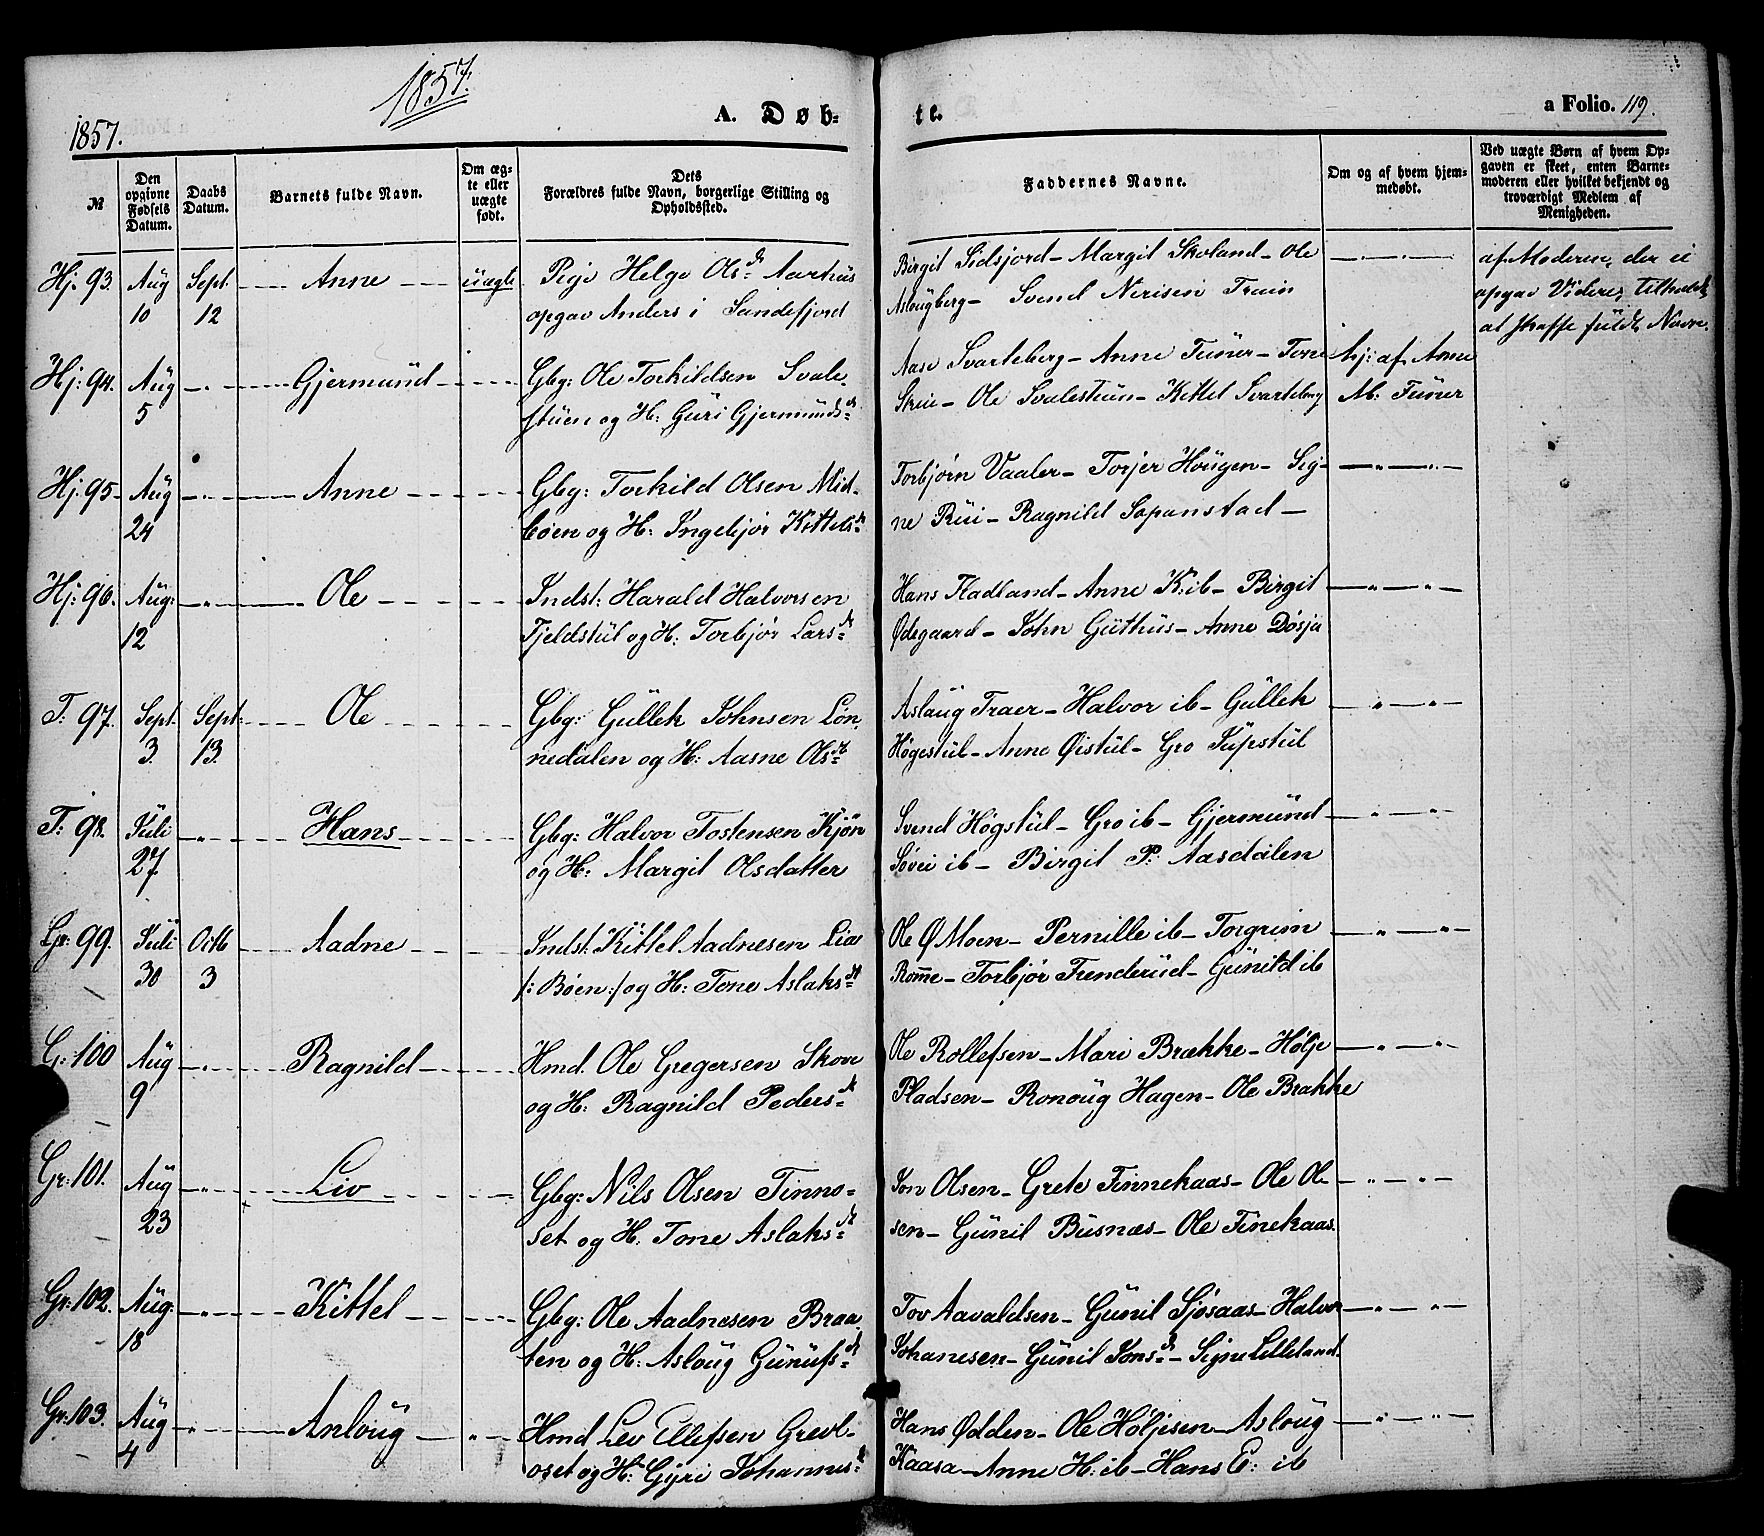 1857.
1857.
A. Døb-
te.
a Folio. 119.
№
Den opgivne Fødsels Datum.
Daabs Datum.
Barnets fulde Navn.
Om ægte eller uægte født.
Dets Forældres fulde Navn, borgerlige Stilling og Opholdssted.
Faddernes Navne.
Om og af hvem hjemmedøbt.
Ved uægte Børn af hvem Opgaven er skeet, enten Barnemoderen eller hvilket bekjendt og troværdigt Medlem af Menigheden.
Hj. 93. Aug 10 Sept. 12 Anne uægte
Pige Helge Olsdr Aarhus
opgav Anders i Sandefjord
Birgit Sidsjord - Margit Skoland - Ole
Aslougberg - Svend Nerisen Traen
af Moderen, der ei
opgav Videre, tilholdt
at skaffe fuldt Navn.
Hj: 94. Aug 5 Gjermund
Gbg: Ole Torkildsen Svale-
stuen og H: Guri Gjermundsdr
Aase Svarteberg - Anne Funer - Tone
Skrei - Ole Svalestuen - Kittel Svarteberg
hj: af Anne
M: Funer
Hj. 95. Aug 24 Anne
Gbg: Torkild Olsen Mid-
bøen og H: Ingebjør Kittelsdr
Torbjørn Vaaler - Torjer Hougen - Sig-
ne Rui - Ragnild Sopanstad -
Hj: 96. Aug: 12 Ole
Indst: Harald Halvorsen
Fjeldstul og H: Torbjør Larsdr
Hans Fladland - Anne K: ib - Birgit
Ødegaard - John Guthus - Anne Døsja
T: 97. Sept. 3. Sept: 13. Ole
Gbg: Gullek Johnsen Løn-
nedalen og H: Aasne Olsdr
Aslaug Traer - Halvor ib - Gullek
Høgestul - Anne Øistul - Gro Jupstul
T: 98. Juli 27 Hans
Gbg: Halvor Tostensen Kjøn
og H: Margit Olsdatter
Svend Høgstul - Gro ib - Gjermund
Søvei ib - Birgit P: Aasdalen
Gr: 99. Juli 30 Octb 3 Aadne
Indst. Kittel Aadnesen Lia
/: Bøen :/ og H: Tone Aslaksdt
Ole Ø Moen - Pernille ib - Torgrim
Romme - Torbjør Frenderud - Gunild ib
G: 100 Aug 9 Ragnild
Hmd. Ole Gregersen Skove
og H: Ragnild Pedersdt
Ole Rollefsen - Mari Brække - Hølje
Pladsen - Ronoug Hagen - Ole Brække
Gr: 101. Aug 23 Liv
Gbg: Nils Olsen Tinno-
set og H: Tone Aslaksdt
Jon Olsen - Grete Finnekaas - Ole Ol-
sen - Gunil Busnæs - Ole Finekaas.
Gr: 102. Aug: 18 Kittel
Gbg: Ole Aadnesen Braa-
ten og H: Asloug Gunufsdt
Tov Aavaldsen - Gunil Sjøsaas - Halvor
Johanesen - Gunil Jonsd - Signe Lilleland.
Gr: 103. Aug 4 Anloug
Hmd Lev Ellefsen Grevl-
oset og H: Gyri Johannesd
Hans Ødden - Ole Høljesen - Asloug
Kaasa - Anne H: ib - Hans E: ib